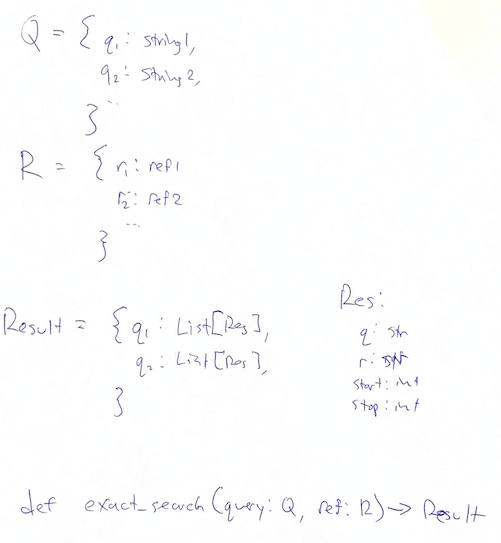 Q = { q1: string1,
q2: string2,
...
}
R = { r1: ref1
r2: ref2
...
}
Result = { q1: List[Res],
q2: List[Res],
}
Res:
q: str
r: str
start: int
stop: int
def exact_search(query: Q, ref: R) -> Result